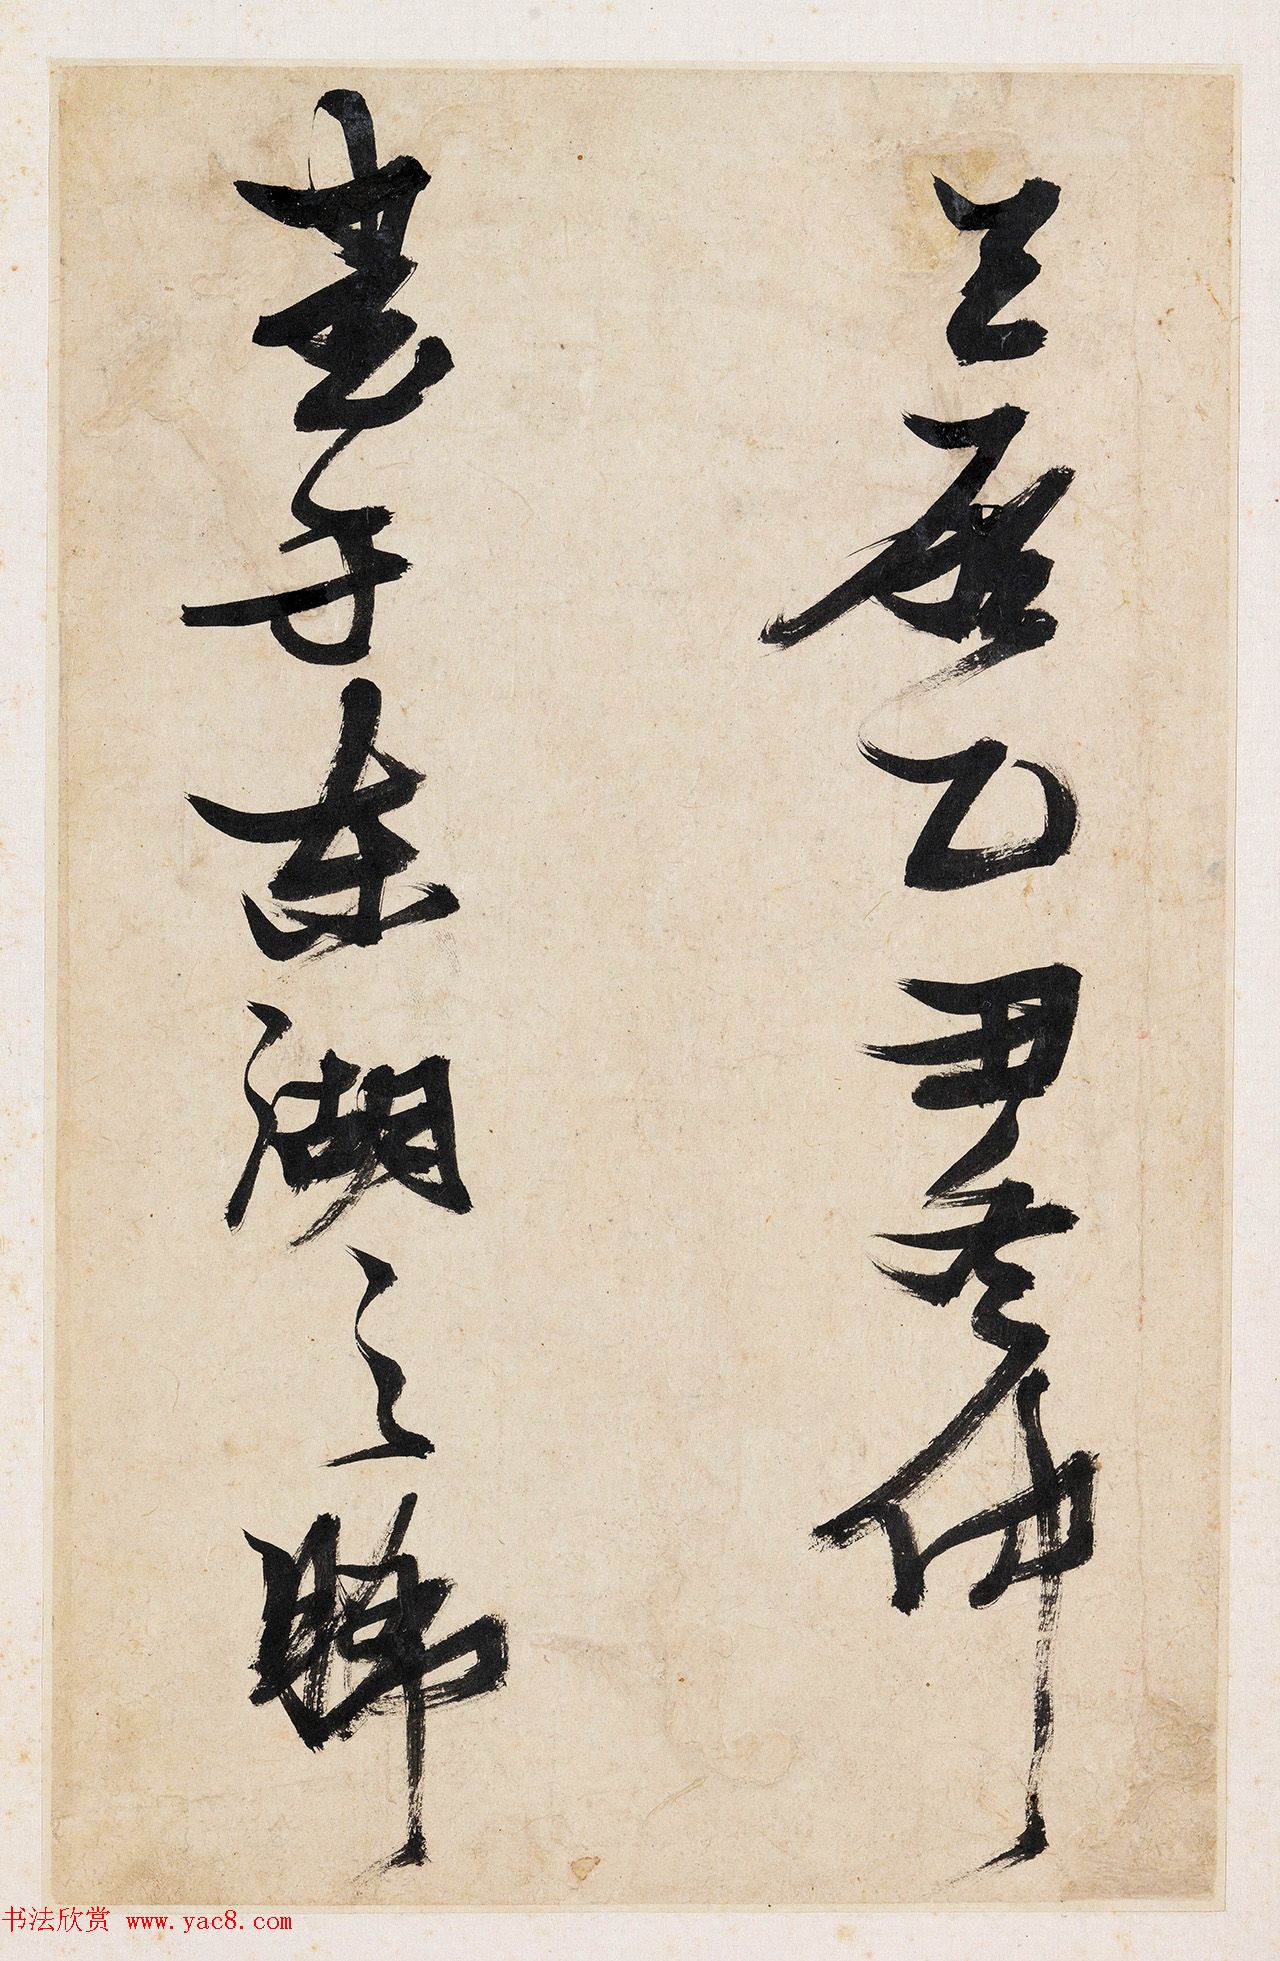 天啟乙丑冬仲
書于東湖之
书法欣赏 www.yac8.com